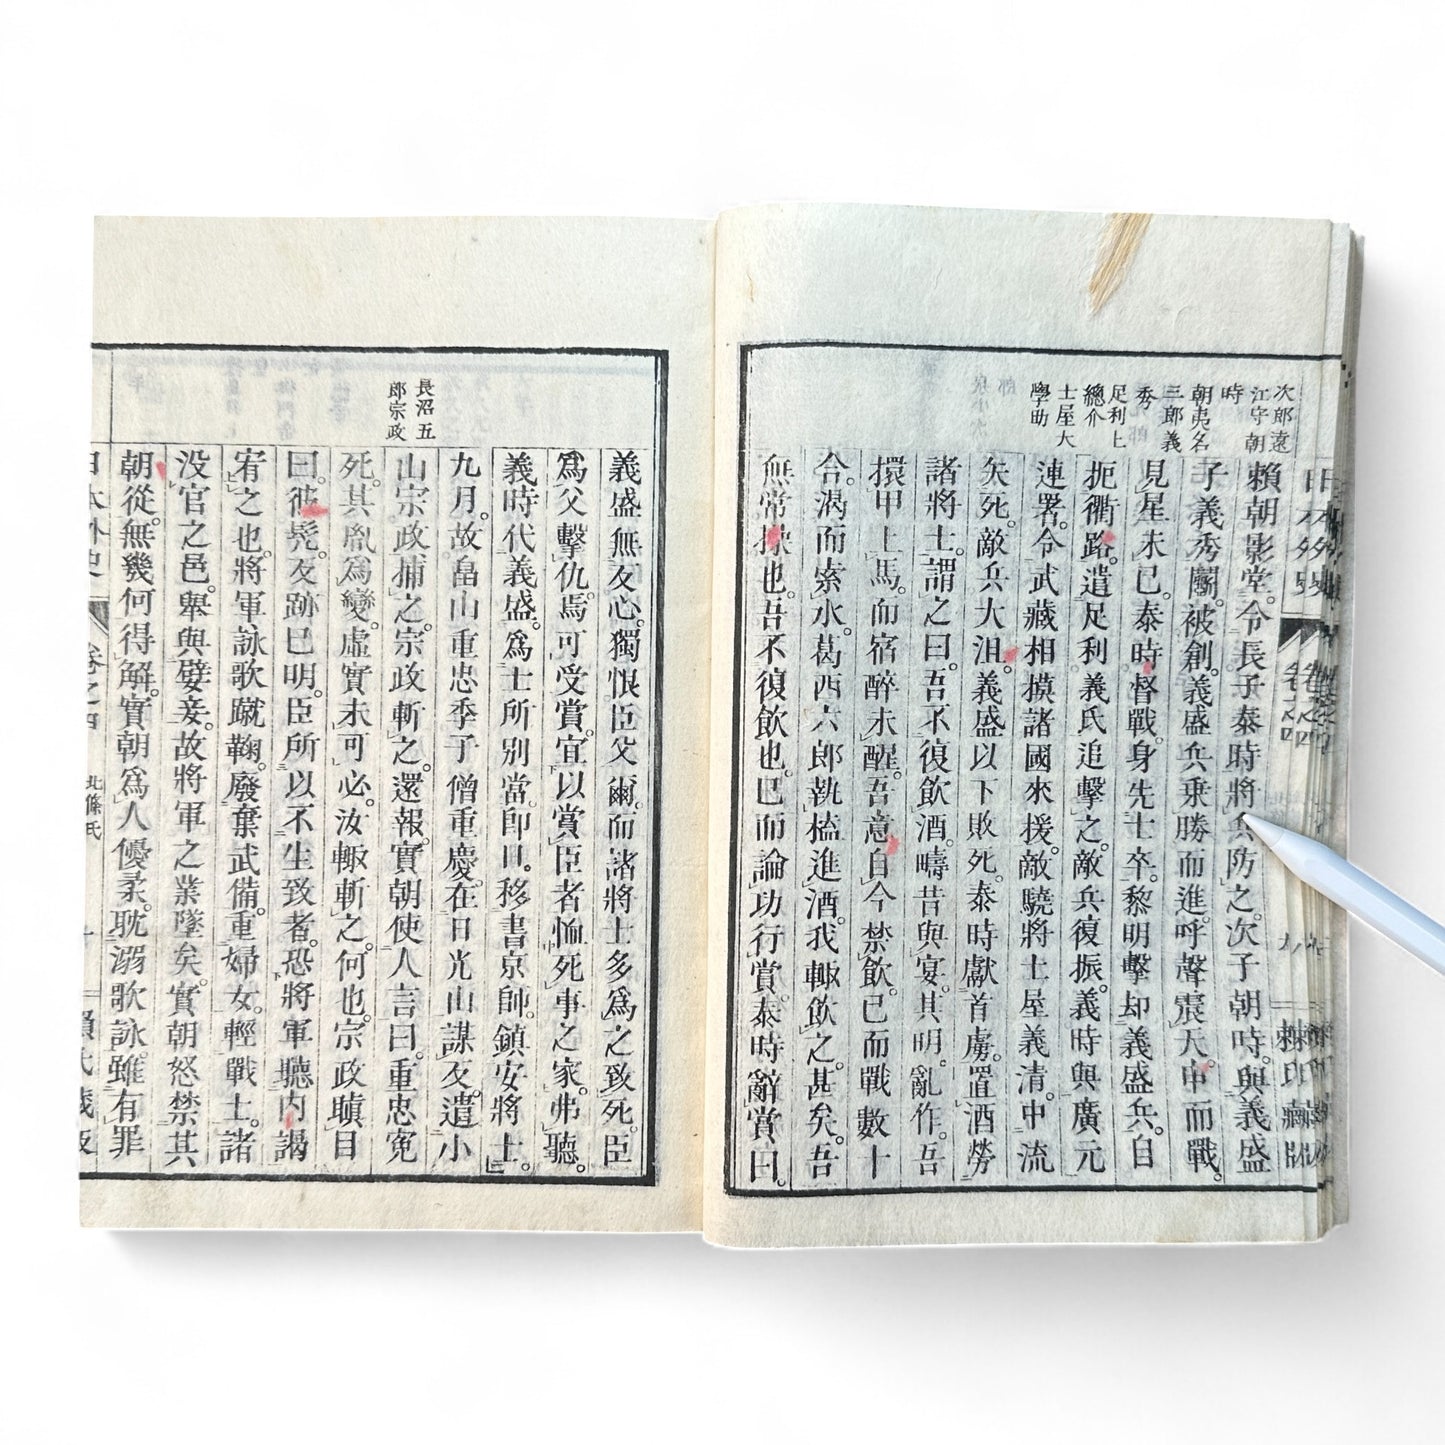 次郎遠
江守朝
時
朝夷名
三郎義
秀
足利上
總介
土屋大
學助
賴朝影堂。令長子泰時將兵防之。次子朝時。與義盛
子義秀鬭。被創。義盛兵乘勝而進。呼聲震天。申而戰。
見星未已。泰時督戰。身先士卒。黎明擊却義盛兵。自
扼衢路。遣足利義氏追擊之。敵兵復振。義時與廣元
連署。令武藏相摸諸國來援。敵驍將土屋義清。中流
矢死。敵兵大沮。義盛以下敗死。泰時獻首虜。置酒勞
諸將士。謂之曰。吾不復飲酒。疇昔與宴。其明。亂作。吾
擐甲上馬。而宿醉未醒。吾意自今禁飲。已而戰數十
合。渴而索水。葛西六郎執榼進酒。我輙飲之。甚矣。吾
無常操也。吾不復飲也。已而論功行賞。泰時辭賞曰。
長沼五
郎宗政
義盛無反心。獨恨臣父爾。而諸將士多爲之致死。臣
爲父擊仇。焉可受賞。宜以賞臣者恤死事之家。弗聽。
義時代義盛。爲士所別當。卽日。移書京師。鎮安將士。
九月。故畠山重忠季子僧重慶。在日光山謀反。遣小
山宗政捕之。宗政斬之。還報。實朝使人言曰。重忠冤
死。其胤爲變。虛實未可必。汝輙斬之。何也。宗政瞋目
曰。彼髡。反跡已明。臣所以不生致者。恐將軍聽內謁
宥之也。將軍詠歌蹴鞠。廢棄武備。重婦女。輕戰士。諸
没官之邑。舉與嬖妾。故將軍之業墜矣。實朝怒禁其
朝從。無幾何得解。實朝爲人優柔。耽溺歌詠。雖有罪
日本外史
卷之四
北條氏
十
賴氏藏版